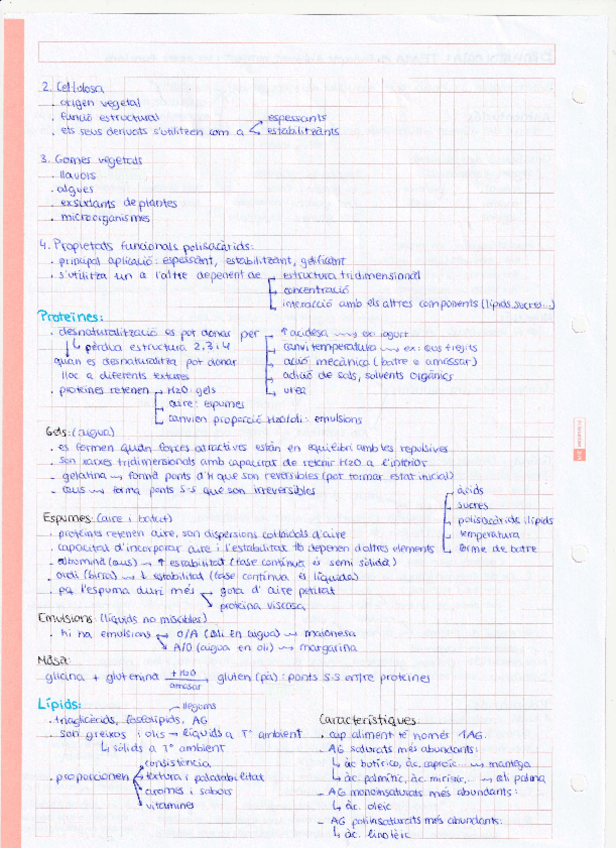 2. Cel·lulosa
. origen vegetal
. funció estructural
. els seus derivats s'utilitzen com a
espessants
estabilitzants
3. Gomes vegetals
. llavors
. algues
. exsudants de plantes
. microorganismes
4. Propietats funcionals polisacàrids:
. principal aplicació: espessant, estabilitzant, gelificant
. s'utilitza un a l'altre depenent de
estructura tridimensional
concentració
interacció amb els altres components (lípids, sucres...)
Proteïnes:
. desnaturalització es pot donar per
↑ acidesa → ex: iogurt
↳ pèrdua estructura 2, 3 i 4
canvi temperatura → ex: ous fregits
quan es desnaturalitza pot donar
acció mecànica (batre o amassar)
lloc a diferents textures
adició de sals, solvents orgànics
urea
. proteïnes retenen
H2O: gels
aire: espumes
canvien proporció H2O/oli: emulsions
Gels: (aigua)
. es formen quan forces atractives estan en equilibri amb les repulsives
. són xarxes tridimensionals amb capacitat de retenir H2O a l'interior
- gelatina → forma ponts d'H que són reversibles (pot tornar estat inicial)
. ous → forma ponts S-S que són irreversibles
àcids
sucres
polisacàrids i lípids
temperatura
forma de batre
Espumes: (aire i batut)
. proteïnes retenen aire, són dispersions col·loidals d'aire
. capacitat d'incorporar aire i l'estabilitat tb depenen d'altres elements
- albúmina (ous) → ↑ estabilitat (fase contínua és semi sòlida)
. ordi (birra) → ↓ estabilitat (fase contínua és líquida)
. pq l'espuma duri més
gota d'aire petitat
proteïna viscosa
Emulsions: (líquids no miscibles)
. hi ha emulsions
O/A (oli en aigua) → maionesa
A/O (aigua en oli) → margarina
Masa:
gliadina + glutenina +H2O amassar → gluten (pa): ponts S-S entre proteïnes
Lípids:
. triaglicèrids, fosfolípids, AG
. són greixos i olis → líquids a Tª ambient
↳ sòlids a Tª ambient
. proporcionen
consistència
textura i palatabilitat
aromes i sabors
vitamines
Característiques
. cap aliment té només 1AG.
- AG saturats més abundants:
↳ àc. butíric, àc. caproic... → mantega
↳ àc. palmític, àc. mirístic, → oli palma
- AG monoinsaturats més abundants:
↳ àc. oleic
- AG poliinsaturats més abundants:
↳ àc. linolèic